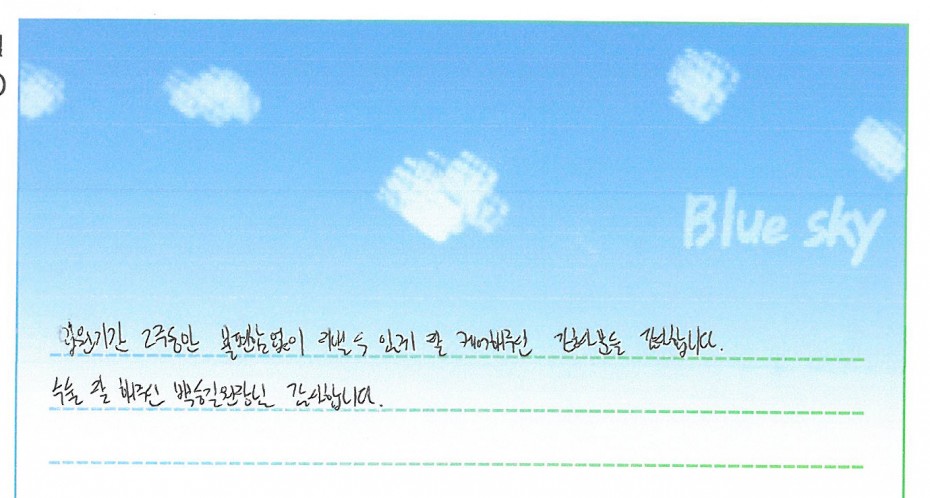 Blue sky
입원기간 2주동안 불편함없이 지낼 수 있게 잘 케어해주신 간호사분들 감사합니다.
수술 잘 해주신 백승길원장님 감사합니다.